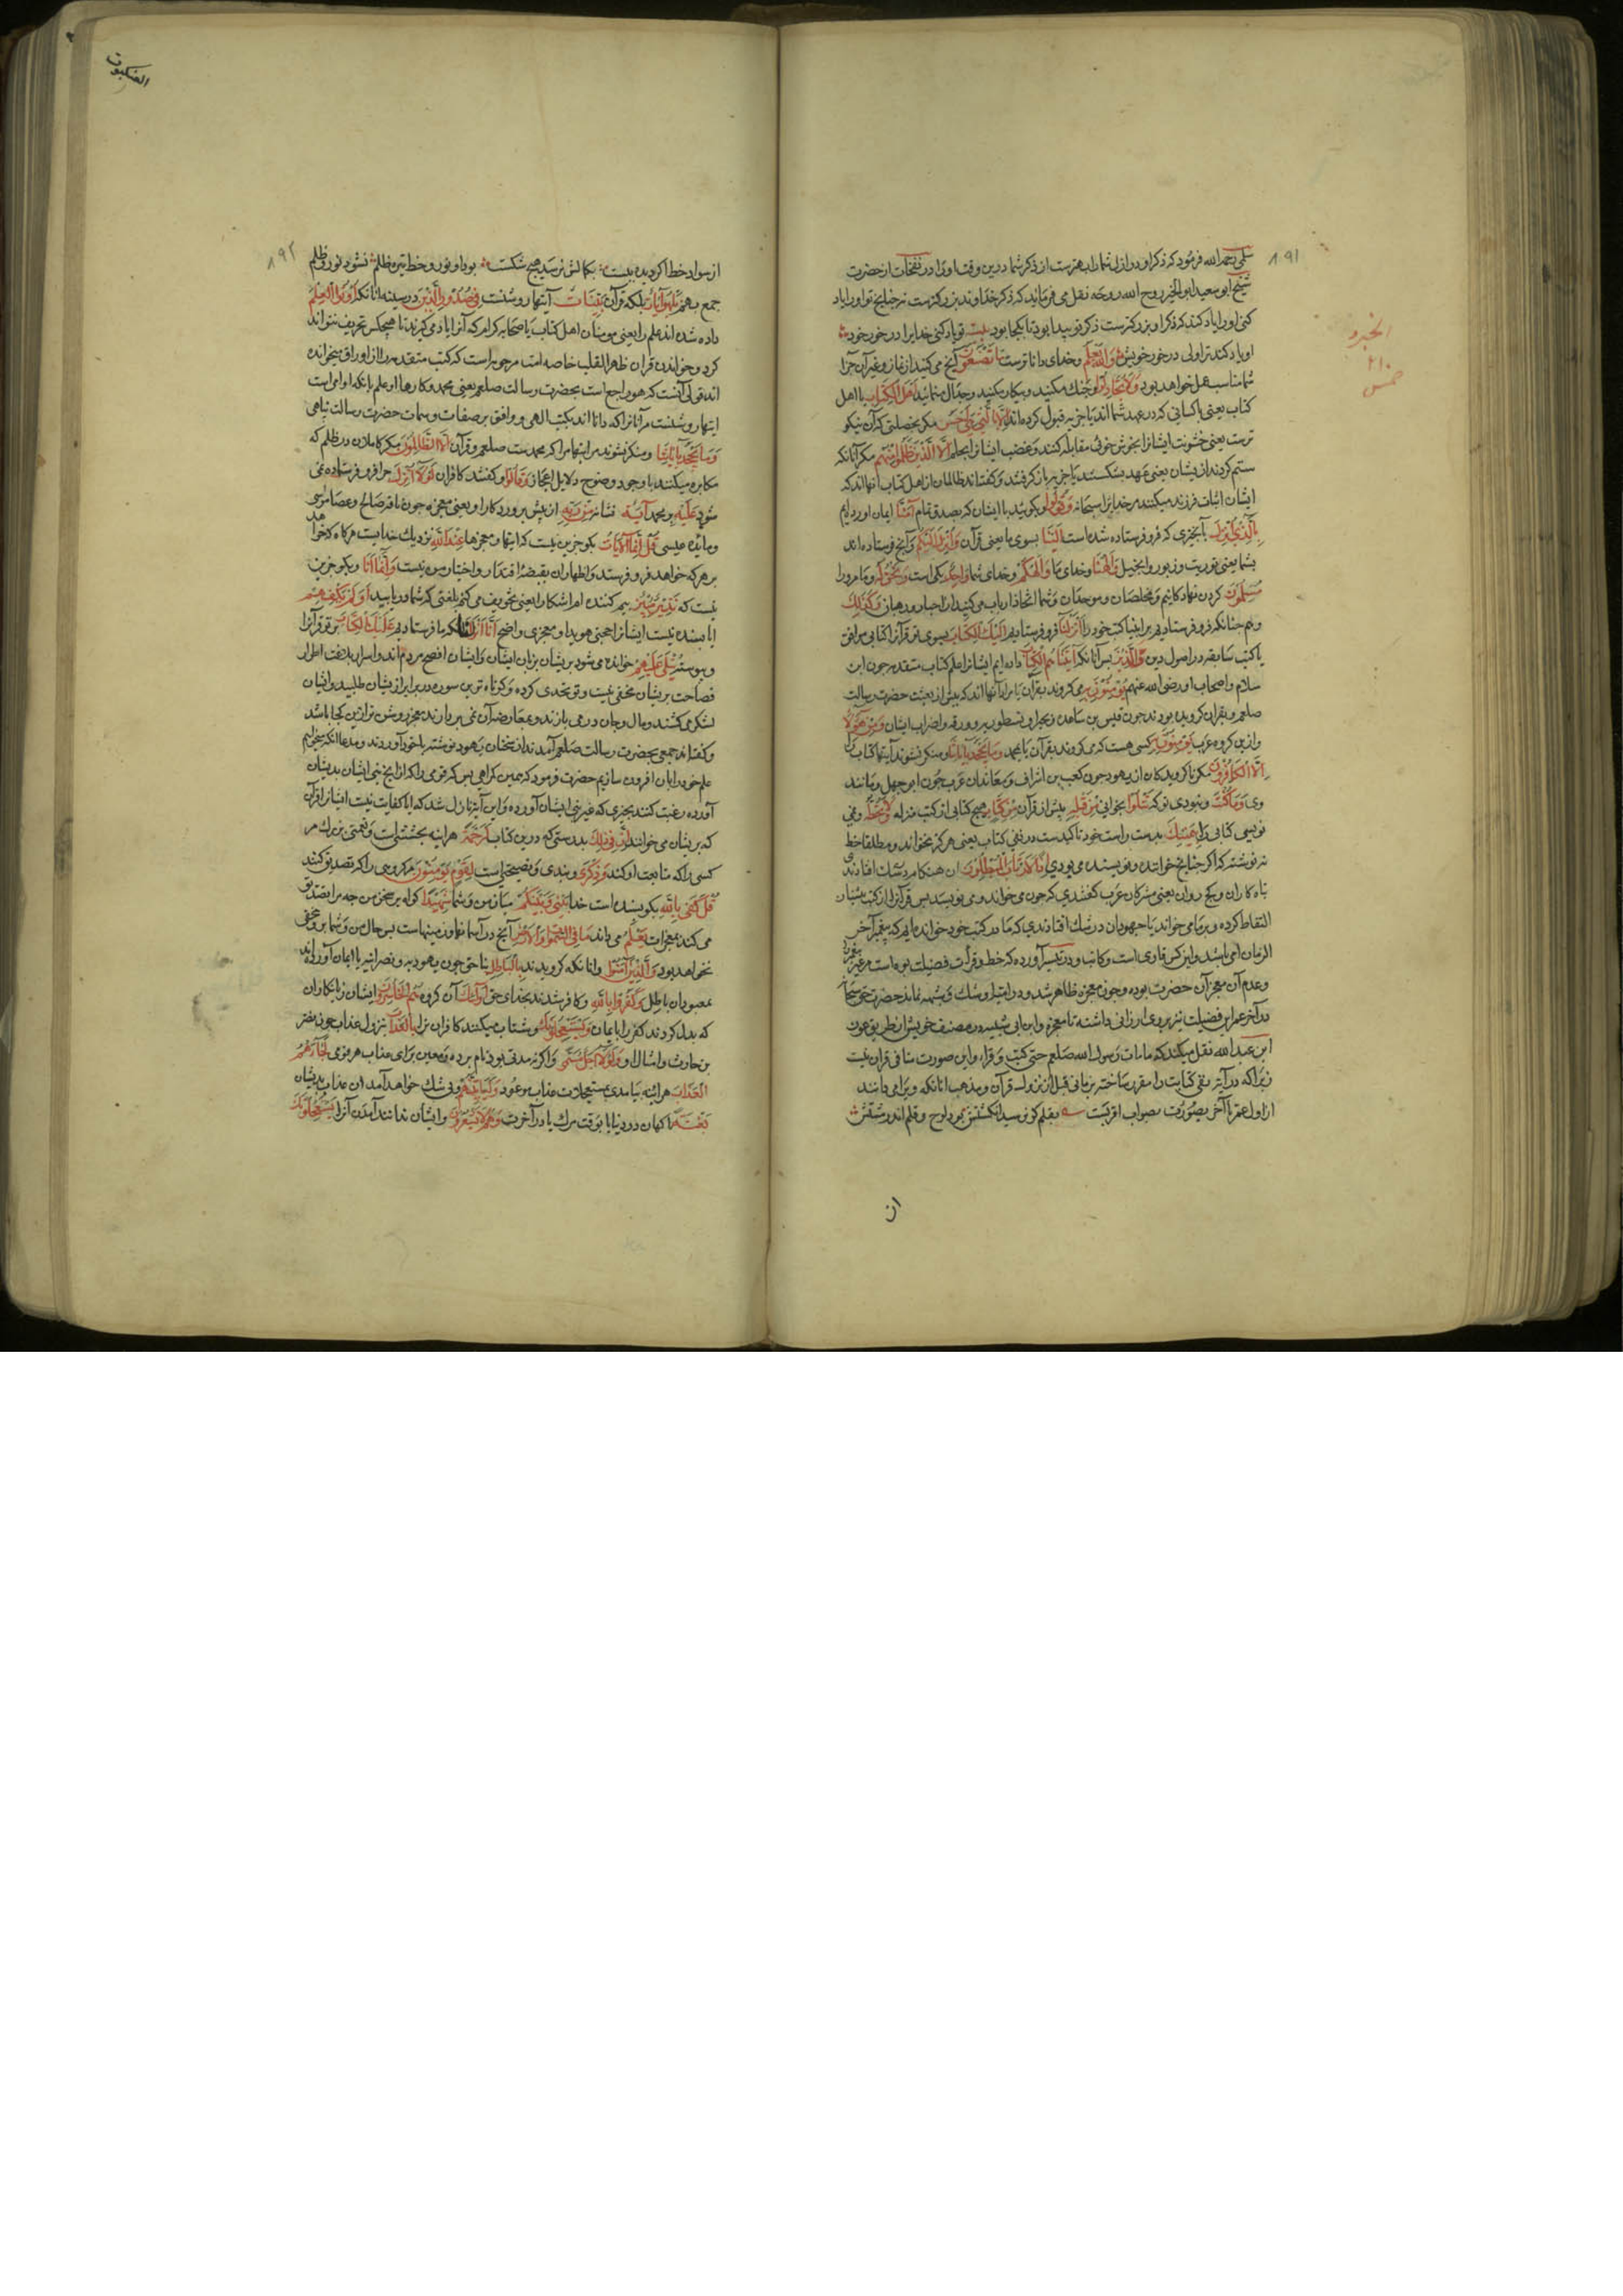 ۸۹۱
سلمی رحمه الله فرمود که ذکر او در ازل شما را بهترست از ذکر شما درین وقت او را در نفحات از حضرت
شیخ ابو سعید ابو الخیر روح الله روحه نقل می فرماید که ذکر خداوند بزرکترست نه چنانچ تو او را یاد
کنی او را یاد کند که ذکر او بزرکترست ذکر تو پیدا بود تا بکجا بود بیت تو یاد کنی خدایرا در خور خود
او یاد کند ترا ولی در خور خویش وَاللَّهُ یَعْلَمُ و خدای دانا ترست مَا تَصْنَعُونَ آنچ می کنید از نماز و غیر آن جزا
شما مناسب عمل خواهد بود وَلَا تُجَادِلُوا و جنك مکنید و پیکار مکنید و جدال منمائید أَهْلَ الْکِتَابِ با اهل
کتاب یعنی با کسانی که در عهد شما اند یا جزیه قبول کرده اند إِلَّا بِالَّتِی هِیَ أَحْسَنُ مکر بخصلتی که آن نیکو
ترست یعنی خشونت ایشانرا بخوش خوئی مقابله کنند و غضب ایشانرا بحلم إِلَّا الَّذِینَ ظَلَمُوا مِنْهُمْ مکر آنانکه
ستم کردند از یشان یعنی عهد بشکستند یا جزیه باز کرفتند و کفته اند ظالمان از اهل کتاب آنها اند که
ایشان اثبات فرزند میکنند مر خدایرا سبحانه وَقُولُوا و بکوئید با ایشان که بصدق تمام آمَنَّا ایمان آورده ایم
بِالَّذِی أُنْزِلَ بآنچیزی که فرو فرستاده شده است إِلَیْنَا بسوی ما یعنی قرآن وَأُنْزِلَ إِلَیْکُمْ و آنچ فرستاده اند
بشما یعنی توریت و زبور و انجیل وَإِلَهُنَا و خدای ما وَإِلَهُکُمْ و خدای شما وَاحِدٌ یکی است وَنَحْنُ لَهُ و ما مر او را
مُسْلِمُونَ کردن نهادکانیم و مخلصان و موحدان و شما اتخاذ ارباب می کنید از احبار و رهبان وَکَذَلِكَ
و هم چنانکه فرو فرستادیم بر انبیا کتب خود را أَنْزَلْنَا فرو فرستادیم إِلَیْكَ الْکِتَابَ بسوی تو قرآنرا کتابی موافق
با کتب سابقه در اصول دین فَالَّذِینَ پس آنانکه آتَیْنَاهُمُ الْکِتَابَ داده ایم ایشانرا علم کتاب متقدمه چون ابن
سلام و اصحاب او رضی الله عنهم یُؤْمِنُونَ بِهِ می کروند بقرآن یا مراد آنها اند که پیش از بعثت حضرت رسالت
صلعم بقران کرویده بودند چون قیس بن ساعده و بحیرا و نسطور و ورقه و اضراب ایشان وَمِنْ هَؤُلَاءِ
و ازین کروه عرب مَنْ یُؤْمِنُ بِهِ کسی هست که می کروند بقرآن یا بمحمد وَمَا یَجْحَدُ بِآیَاتِنَا و منکر نشوند آیتهاء کتاب را
إِلَّا الْکَافِرُونَ مکر ناکرویدکان از یهود چون کعب بن اشرف و معاندان عرب چون ابو جهل و مانند
وی وَمَا کُنْتَ و نبودی تو که تَتْلُو بخوانی مِنْ قَبْلِهِ پیش از قرآن مِنْ کِتَابٍ هیچ کتابی از کتب منزله وَلَا تَخُطُّهُ و نمی
نویسی کتابی را بِیَمِینِكَ بدست راست خود تاکیدست در نفی کتاب یعنی هرکز نخوانده و مطلقا خط
ننوشته که اکر چنانچ خواننده و نویسنده می بودی إِذًا لَارْتَابَ الْمُبْطِلُونَ آن هنکام در شك افتادندی
تباه کاران و کج روان یعنی مشرکان عرب کفتندی که چون می خواند و می نویسد پس قرآنرا از کتب پیشینیان
التقاط کرده و بر ما می خواند یا جهودان در شك افتادندی که ما در کتب خود خوانده ایم که پیغمبر آخر
الزمان امی باشد و این کس قاری است و کاتب و در تیسیر آورده که خط و قرآت فضیلت بوده است مر غیر پیغمبر را
و عدم آن معجز آن حضرت بوده و چون معجزه ظاهر شد و در امتیاز و شك و شبهه نماند حضرت حق سبحانه
در آخر عمر این فضیلت نیز بروی ارزانی داشته تا معجزه و ابن ابی شیبه در مصنف خویش از طریق عون
ابن عبد الله نقل میکند که ما مات رسول الله صلعم حتی کتب و قرا و این صورت منافی قران نیست
زیرا که در آیه نفی کتابت را مقرر ساخته بزمانی قبل از نزول قرآن و مذهب آنانکه ویرا امی دانند
از اول عمر تا آخر بصورت بصواب اقربست بیت بقلم کر نرسید انکشتش بود لوح و قلم اندر مشتش
ان
العنکبوت
۸۹۲
از سواد خط اکر دیده ببست بکمالش نرسد هیچ شکست بود او نور و خط تیره ظلم نشود نور و ظلم
جمع بهم بَلْ هُوَ آیَاتٌ بلکه قرآن بَیِّنَاتٌ آیتهاء روشنست فِی صُدُورِ الَّذِینَ در سینه آنانکه أُوتُوا الْعِلْمَ
داده شده اند علم را یعنی مومنان اهل کتاب یا صحابه کرام که آنرا یاد می کیرند تا هیچکس تحریف نتواند
کرد و خواندن قران ظاهر القلب خاصه امت مرحومه است که کتب متقدمه را از اوراق میخوانده
اند قولی آنست که هو راجع است بحضرت رسالت صلعم یعنی محمد و کارها او علم بانکه او امی است
آیتهاء روشنست مر آنانرا که دانا اند بکتب الهی و موافق بر صفات و سمات حضرت رسالت پناهی
وَمَا یَجْحَدُ بِآیَاتِنَا و منکر نشوند مر آیتهاء مرا که محمدست صلعم و قرآن إِلَّا الظَّالِمُونَ مکر کاملان در ظلم که
مکابره میکنند با وجود وضوح دلایل اعجاز وَقَالُوا و کفتند کافران لَوْلَا أُنْزِلَ چرا فرو فرستاده نمی
شود عَلَیْهِ بر محمد آیَةٌ نشانه مِنْ رَبِّهِ از پیش پروردکار او یعنی معجزه چون ناقه صالح و عصاء موسی
و مائده عیسی قُلْ إِنَّمَا الْآیَاتُ بکو جز این نیست که آیتها و معجزها عِنْدَ اللَّهِ نزدیك خدایست هرکاه که خواهد
بر هر که خواهد فرو فرستد و اظهار آن بقبضه اقتدار و اختیار من نیست وَإِنَّمَا أَنَا و بکو جز این
نیست که نَذِیرٌ مُبِینٌ بیم کننده ام آشکارا یعنی تخویف می کنم بلغتی که شما دریابید أَوَلَمْ یَکْفِهِمْ
ایا بسنده نیست ایشانرا حجتی هویدا و معجزی واضح أَنَّا أَنْزَلْنَا انکه ما فرستادیم عَلَیْكَ الْکِتَابَ بر تو قرآنرا
و پیوسته یُتْلَى عَلَیْهِمْ خوانده می شود بریشان بزبان ایشان و ایشان افصح مردم اند و اسرار بلاغت و اطوار
فصاحت بریشان مخفی نیست و تو تحدی کرده و کوتاه ترین سوره در برابر از یشان طلبید و ایشان
لشکر می کشند و مال و جان در می بازند و بمعارضه آن نمی پردازند معجزه روشن تر ازین کجا باشد
و کفته اند جمعی بحضرت رسالت صلعم آمدند از سخنان یهود نوشته با خود آوردند و مدعا انکه میخواهیم
علم خود را بآن افزون سازیم حضرت فرمود که همین کراهی بس که قومی را که از آنچ نبی ایشان بدیشان
آورده رغبت کنند بچیزی که غیر نبی ایشان آورده و این آیت نازل شد که ایا کفایت نیست ایشانرا قرآن
که بریشان می خوانند إِنَّ فِی ذَلِكَ بدرستی که درین کتاب لَرَحْمَةً هراینه بخششی است و نعمتی بزرك مر
کسی را که متابعت او کند وَذِکْرَى و پندی و نصیحتی است لِقَوْمٍ یُؤْمِنُونَ مر کروهی را که تصدیق کنند
قُلْ کَفَى بِاللَّهِ بکو بسنده است خدا بَیْنِی وَبَیْنَکُمْ میان من و شما شَهِیدًا کواه بر سخن من چه مرا تصدیق
می کند بمعجزات یَعْلَمُ می داند مَا فِی السَّمَوَاتِ وَالْأَرْضِ آنچ در آسمانها و زمینهاست پس حال من و شما برو مخفی
نخواهد بود وَالَّذِینَ آمَنُوا و آنانکه کرویدند بِالْبَاطِلِ بناحق چون یهود به و نصرانیه یا ایمان آوردند
بمعبودان باطل وَکَفَرُوا بِاللَّهِ و کافر شدند بخدای حق أُولَئِكَ آن کروه هُمُ الْخَاسِرُونَ ایشان زیانکاران
که بدل کردند کفر را بایمان وَیَسْتَعْجِلُونَكَ و شتاب میکنند کافران ترا بِالْعَذَابِ بنزول عذاب چون نضر
بن حارث و امثال او وَلَوْلَا أَجَلٌ مُسَمًّى و اکر نه مدتی بودی نام برده و معین برای عذاب هر قومی لَجَاءَهُمُ
الْعَذَابُ هراینه بیامدی بدیشان عذاب موعود وَلَیَأْتِیَنَّهُمْ و بی شك خواهد آمد ان عذاب بدیشان
بَغْتَةً ناکهان در دنیا بوقت مرك یا در آخرت وَهُمْ لَا یَشْعُرُونَ و ایشان ندانند آمدن آنرا یَسْتَعْجِلُونَكَ